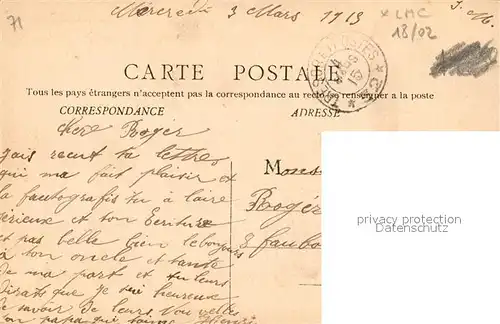 71
Mercredi 3 Mars 1915
x LMC
18/02
J. M.
CARTE POSTALE
Tous les pays étrangers n'acceptent pas la correspondance au recto (se renseigner à la poste
CORRESPONDANCE
ADRESSE
Chere Roger
Jais recut ta lettre
qui ma fait plaisir et
la fautografis tu a laire
serieux et ton Ecriture
et pas belle bien le bonjours
a ton oncle et tante
de ma part et tu leurs
dirats que je sui heureux
de savoir de leurs nouvelles
ton papa qui
Mons
Roger
8 faubo
privacy protection
privacy protection